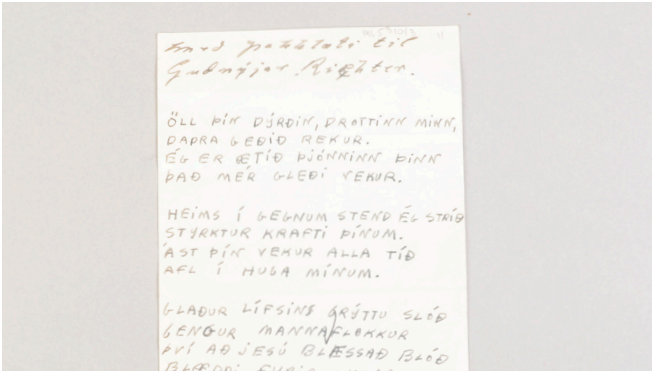 með þakklæti til
Guðnýjar Richter.
ÖLL ÞÍN DÝRÐIN, DROTTINN MINN,
DAPRA GEÐIÐ REKUR.
ÉG ER ÆTÍÐ ÞJÓNNINN ÞINN
ÞAÐ MÉR GLEÐI VEKUR.
HEIMS Í GEGNUM STEND ÉG STRÍÐ
STYRKTUR KRAFTI ÞÍNUM.
ÁST ÞÍN VEKUR ALLA TÍÐ
AFL Í HUGA MÍNUM.
GLAÐUR LÍFSINS GRÝTTU SLÓÐ
GENGUR MANNAFLOKKUR
ÞVÍ AÐ JESÚ BLESSAÐ BLÓÐ